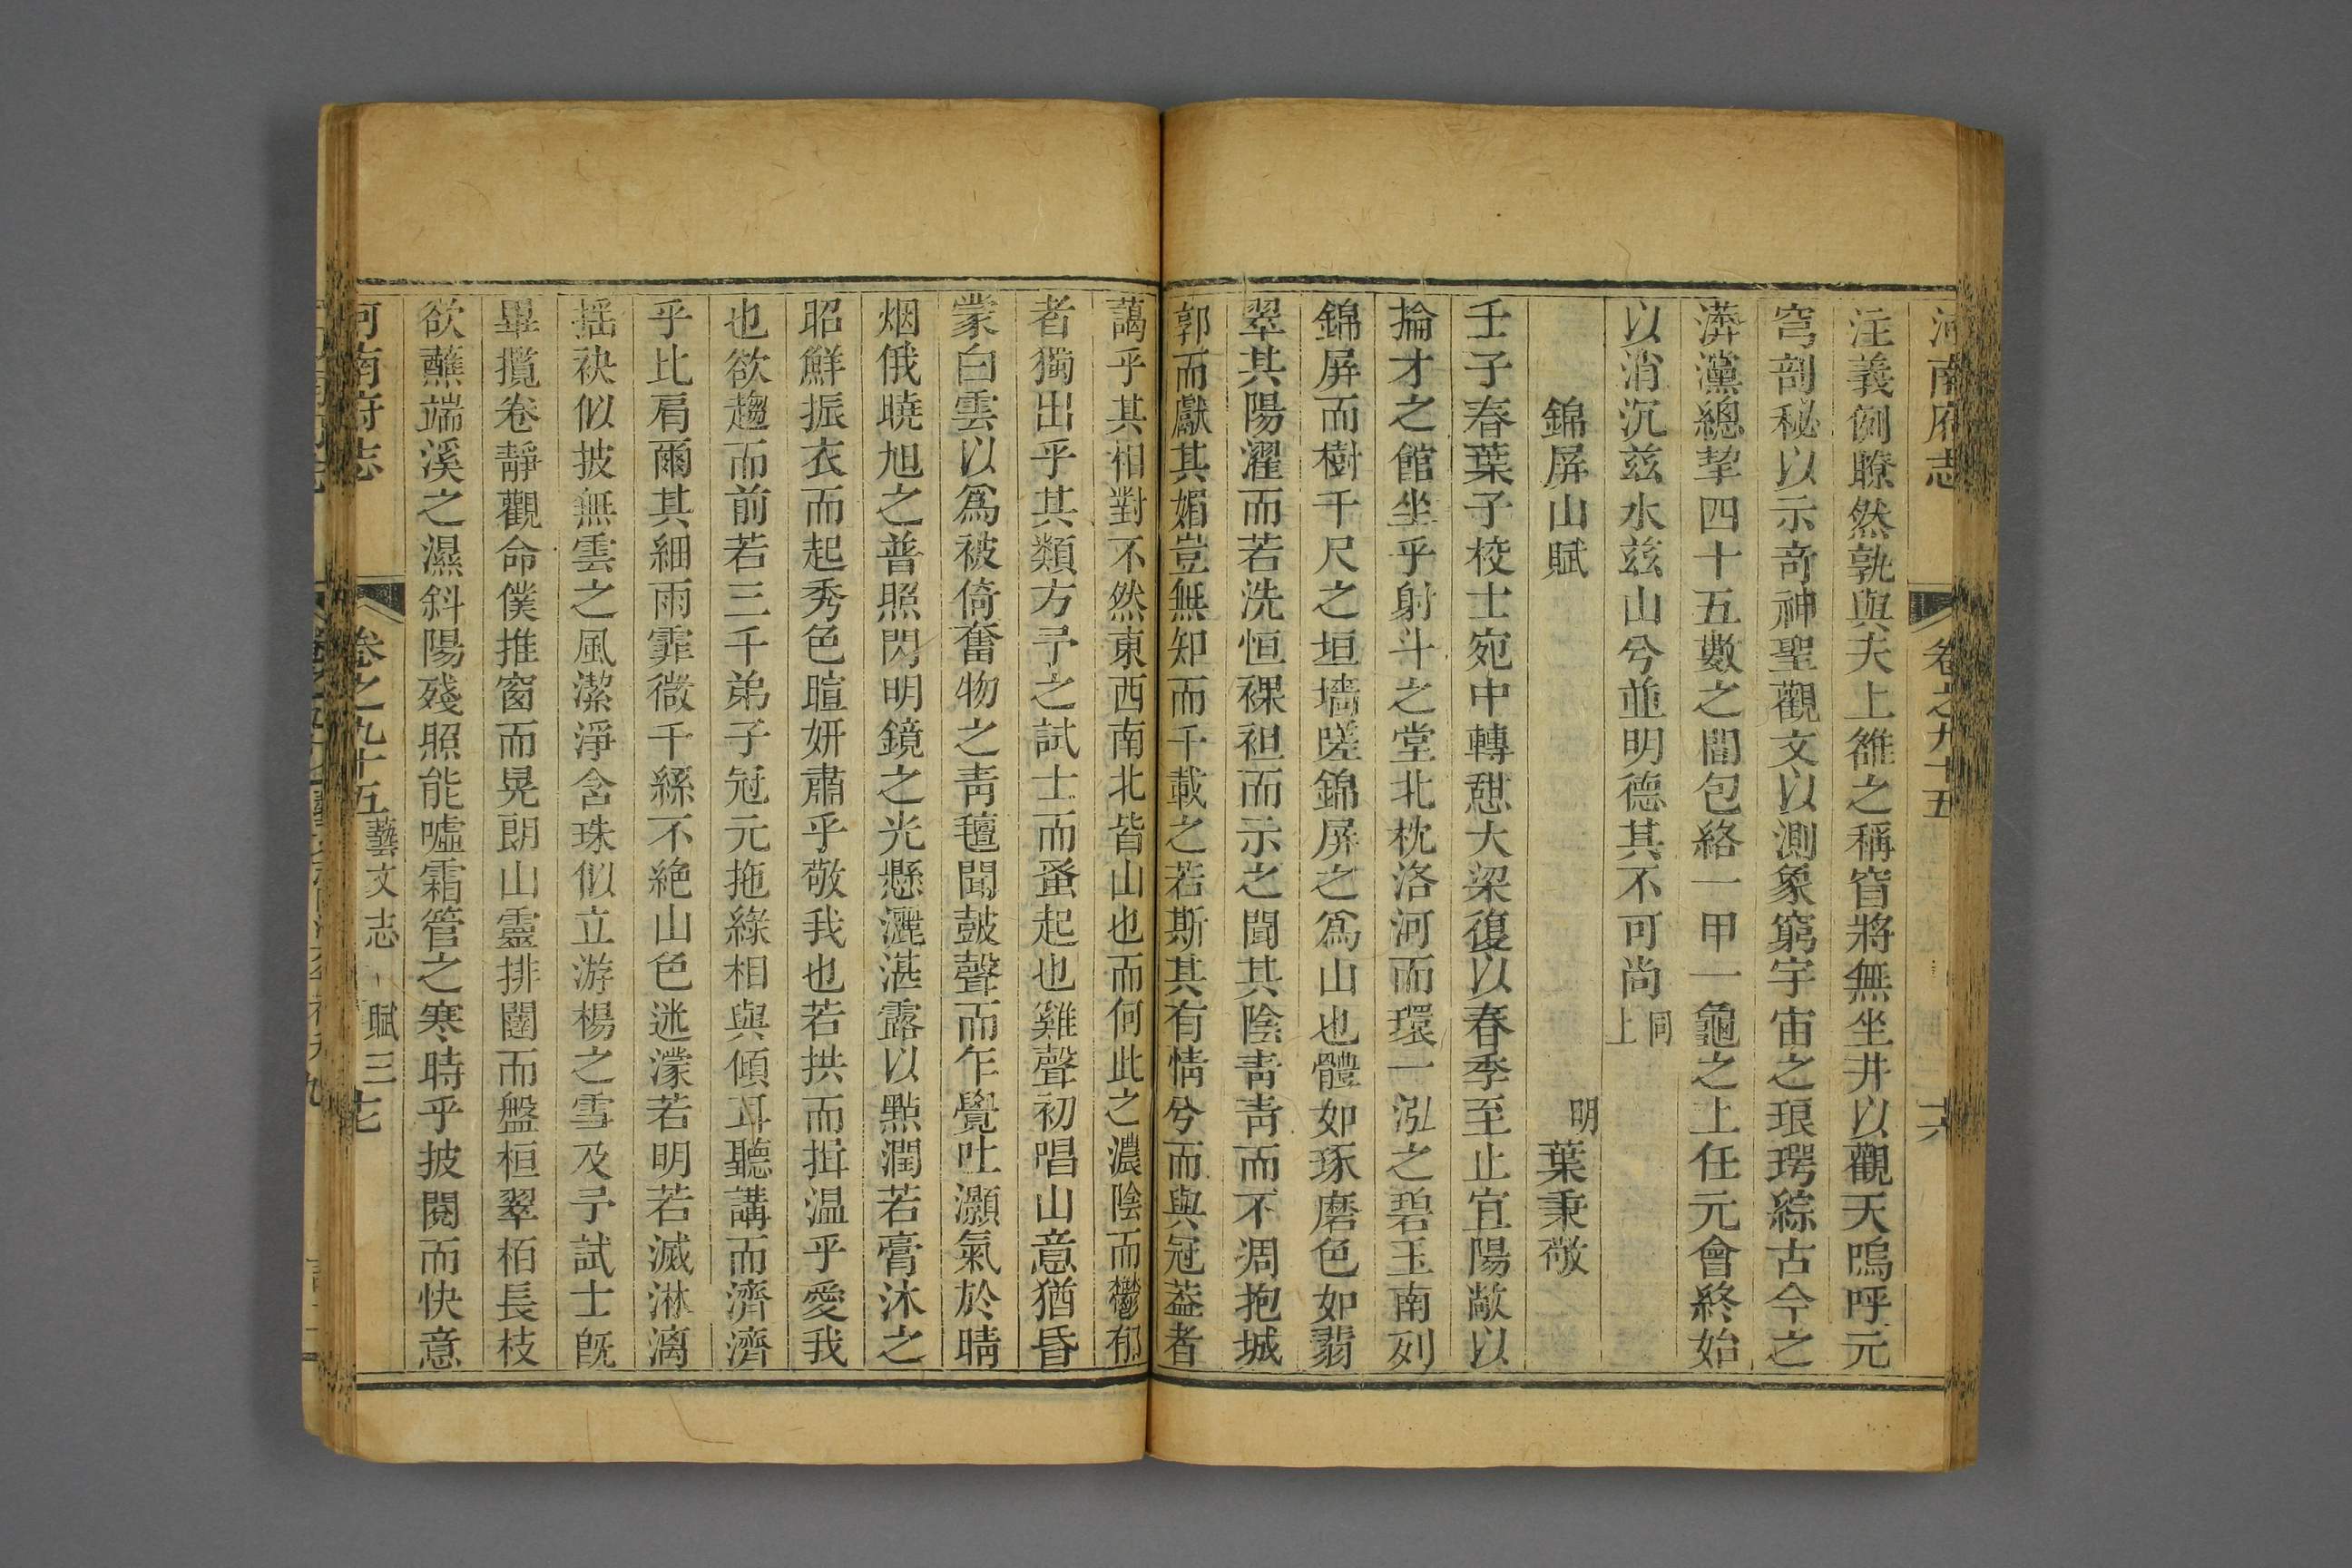 河南府志 卷之九十五 六
注義例瞭然孰與夫上雒之稱窅將無坐井以觀天嗚呼元
穹剖秘以示奇神聖觀文以測象窮宇宙之琅琈綜古今之
漭灙總挈四十五數之間包絡一甲一龜之上任元會終始
以消沉兹水兹山兮並明德其不可尚同上
錦屏山賦 明葉秉敬
壬子春葉子校士宛中轉憇大梁復以春季至止宜陽敞以
掄才之館坐乎射斗之堂北枕洛河而環一泓之碧玉南列
錦屏而樹千尺之垣墻嗟錦屏之爲山也體如琢磨色如翡
翠其陽濯而若洗恒裸袒而示之聞其陰靑靑而不凋抱城
郭而獻其媚豈無知而千載之若斯其有情兮而與冠葢者
藹乎其相對不然東西南北皆山也而何此之濃陰而鬱郁
者獨出乎其類方予之試士而蚤起也雞聲初唱山意猶昏
蒙白雲以爲被倚奮物之靑氊聞鼓聲而乍覺吐灝氣於晴
烟俄曉旭之普照閃明鏡之光懸灑湛露以點潤若膏沐之
昭鮮振衣而起秀色暄妍肅乎敬我也若拱而揖温乎愛我
也欲趨而前若三千弟子冠元拖綠相與傾耳聽講而濟濟
乎比肩爾其細雨霏微千絲不絶山色迷濛若明若滅淋漓
揺袂似披無雲之風潔淨含珠似立游楊之雪及予試士旣
畢攬卷靜觀命僕推窗而晃朗山靈排闥而盤桓翠栢長枝
欲蘸端溪之濕斜陽殘照能噓霜管之寒時乎披閱而快意
河南府志 卷之九十五 藝文志 賦三